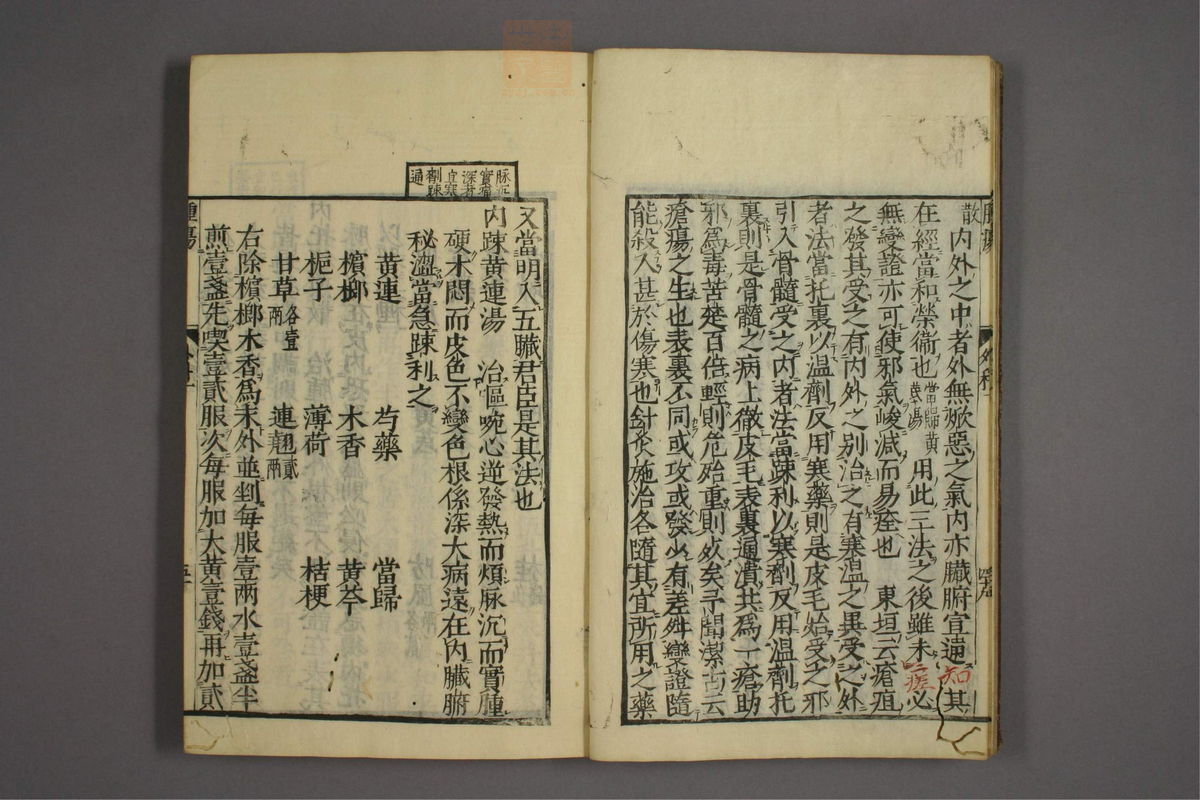 散 内外之中者外無㷔惡之氣内亦臟腑宣過知其
在經當和榮衞也當歸黄芪湯用此三法之後雖未瘥必
無變證亦可使邪氣峻减而易痊也 東垣云瘡疽
之發其受之有内外之别治之有寒温之異受之外
者法當托裏以温劑反用寒藥則是皮毛始受之邪
引入骨髓受之内者法當疎利以寒劑反用温劑托
裏則是骨髓之病上徹皮毛表裏通潰共爲一瘡助
邪爲毒苦楚百倍輕則危殆重則死矣予聞潔古云
瘡瘍之生也表裏不同或攻或發少有差舛變證隨
能殺人甚於傷寒也針灸施治各隨其宜所用之藥
又當明人五臟君臣是其法也
内疎黄連湯 治嘔啘心逆發熱而煩脉沉而實腫
硬木悶而皮色不變色根係深大病遠在内臟腑
秘澁當急疎利之
黄連 芍藥 當歸
檳榔 木香 黄芩
梔子 薄荷 桔梗
甘草各壹兩 連翹貳兩
右除檳榔木香爲末外並剉每服壹兩水壹盞半
煎壹盞先喫壹貳服次每服加大黄壹錢再加貳
脉沉
實瘡
深者
宜寒
劑疎
通
腫瘍